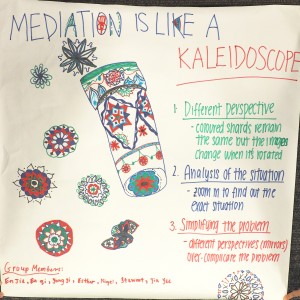 MEDIATION IS LIKE A
KALEIDOSCOPE
1. Different perspective
- coloured shards remain
the same but the images
change when it's rotated
2. Analysis of the situation
- zoom in to find out the
exact situation
3. Simplifying the problem
- different perspectives (mirrors)
over-complicate the problem
Group Members:
Esther, Stewart, Jia